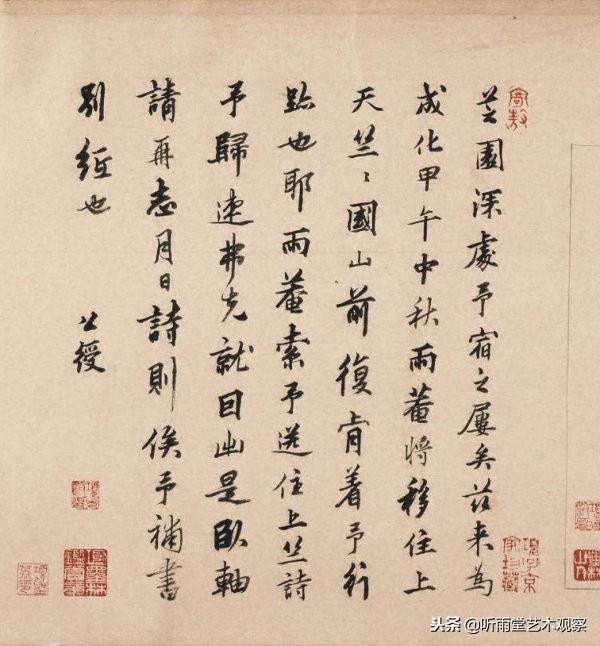 芝園深處予宿之屢矣茲来為
成化甲午中秋雨菴将移住上
天竺〻國山前復肯着予行
跡也耶雨菴索予送住上竺詩
予歸速弗克就因出是卧軸
請再志月日詩則俟予補書
別紙也 公綬
項子京家珍藏
头条 @听雨堂艺术观察